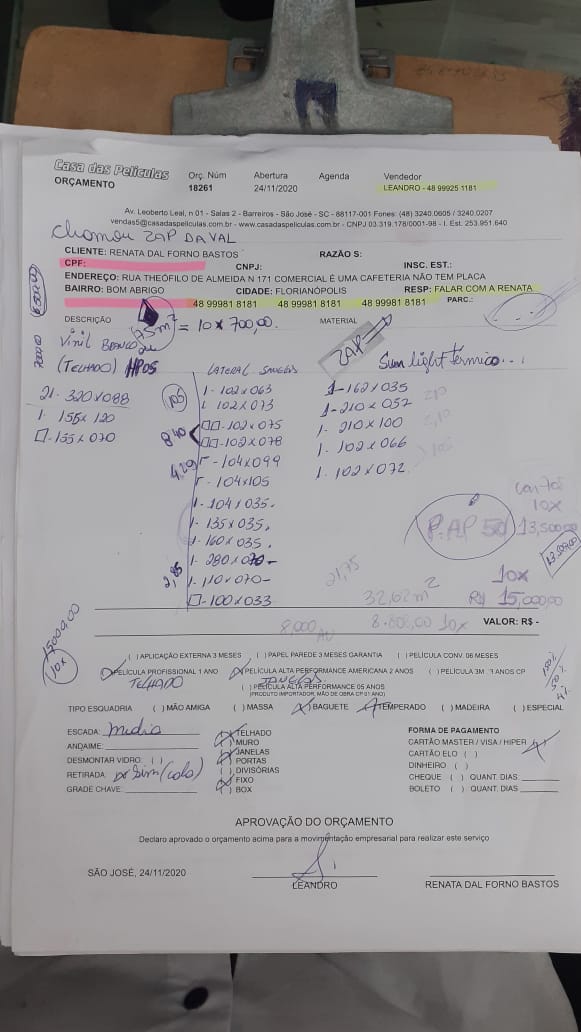 Casa das Películas
ORÇAMENTO
Orç. Núm
18261
Abertura
24/11/2020
Agenda
Vendedor
LEANDRO - 48 99925 1181
Av. Leoberto Leal, n 01 - Salas 2 - Barreiros - São José - SC - 88117-001 Fones: (48) 3240.0605 / 3240.0207
vendas5@casadaspeliculas.com.br - www.casadaspeliculas.com.br - CNPJ 03.319.178/0001-98 - I. Est: 253.951.640
Chamou ZAP DA VAL
CLIENTE: RENATA DAL FORNO BASTOS RAZÃO S:
CPF: CNPJ: INSC. EST.:
ENDEREÇO: RUA THEÓFILO DE ALMEIDA N 171 COMERCIAL É UMA CAFETERIA NÃO TEM PLACA
BAIRRO: BOM ABRIGO CIDADE: FLORIANÓPOLIS RESP: FALAR COM A RENATA
48 99981 8181 48 99981 8181 48 99981 8181 PARC.:
DESCRIÇÃO MATERIAL
75m² = 10x700,00.
Vinil Branco
(TELHADO) HP05
21- 320x088
1- 155x120
155x070
LATERAL
1- 102x063
1 102x073
102x075
102x078
104x099
104x105
1-104x035.
1-135x035.
1-160x035.
1-280x070-
1-110x070-
100x033
105
840
4,29
2,85
ZAP
Sun light térmico...
1-162x035
1-210x057
1-210x100
1-102x066
1-102x072
P.AP 50
10x
13,500,00
21,75
32,62m²
10x
R$ 15,000,00
8,000
10x
VALOR: R$ -
15000,00
10x
( ) APLICAÇÃO EXTERNA 3 MESES ( ) PAPEL PAREDE 3 MESES GARANTIA ( ) PELÍCULA CONV. 06 MESES
(X) PELÍCULA PROFISSIONAL 1 ANO (X) PELÍCULA ALTA PERFORMANCE AMERICANA 2 ANOS ( ) PELÍCULA 3M
TELHADO
( ) PELÍCULA ALTA PERFORMANCE 05 ANOS
(PRODUTO IMPORTADOR, MÃO DE OBRA CP 01 ANO)
TIPO ESQUADRIA ( ) MÃO AMIGA ( ) MASSA (X) BAGUETE (X) TEMPERADO ( ) MADEIRA ( ) ESPECIAL
ESCADA: media
ANDAIME:
DESMONTAR VIDRO: ( )
RETIRADA: Sim (cola)
GRADE CHAVE:
(X) TELHADO
( ) MURO
(X) JANELAS
(X) PORTAS
( ) DIVISÓRIAS
(X) FIXO
( ) BOX
FORMA DE PAGAMENTO
CARTÃO MASTER / VISA / HIPER (X)
CARTÃO ELO ( )
DINHEIRO ( )
CHEQUE ( ) QUANT. DIAS
BOLETO ( ) QUANT. DIAS
APROVAÇÃO DO ORÇAMENTO
Declaro aprovado o orçamento acima para a movimentação empresarial para realizar este serviço
SÃO JOSÉ, 24/11/2020
LEANDRO
RENATA DAL FORNO BASTOS